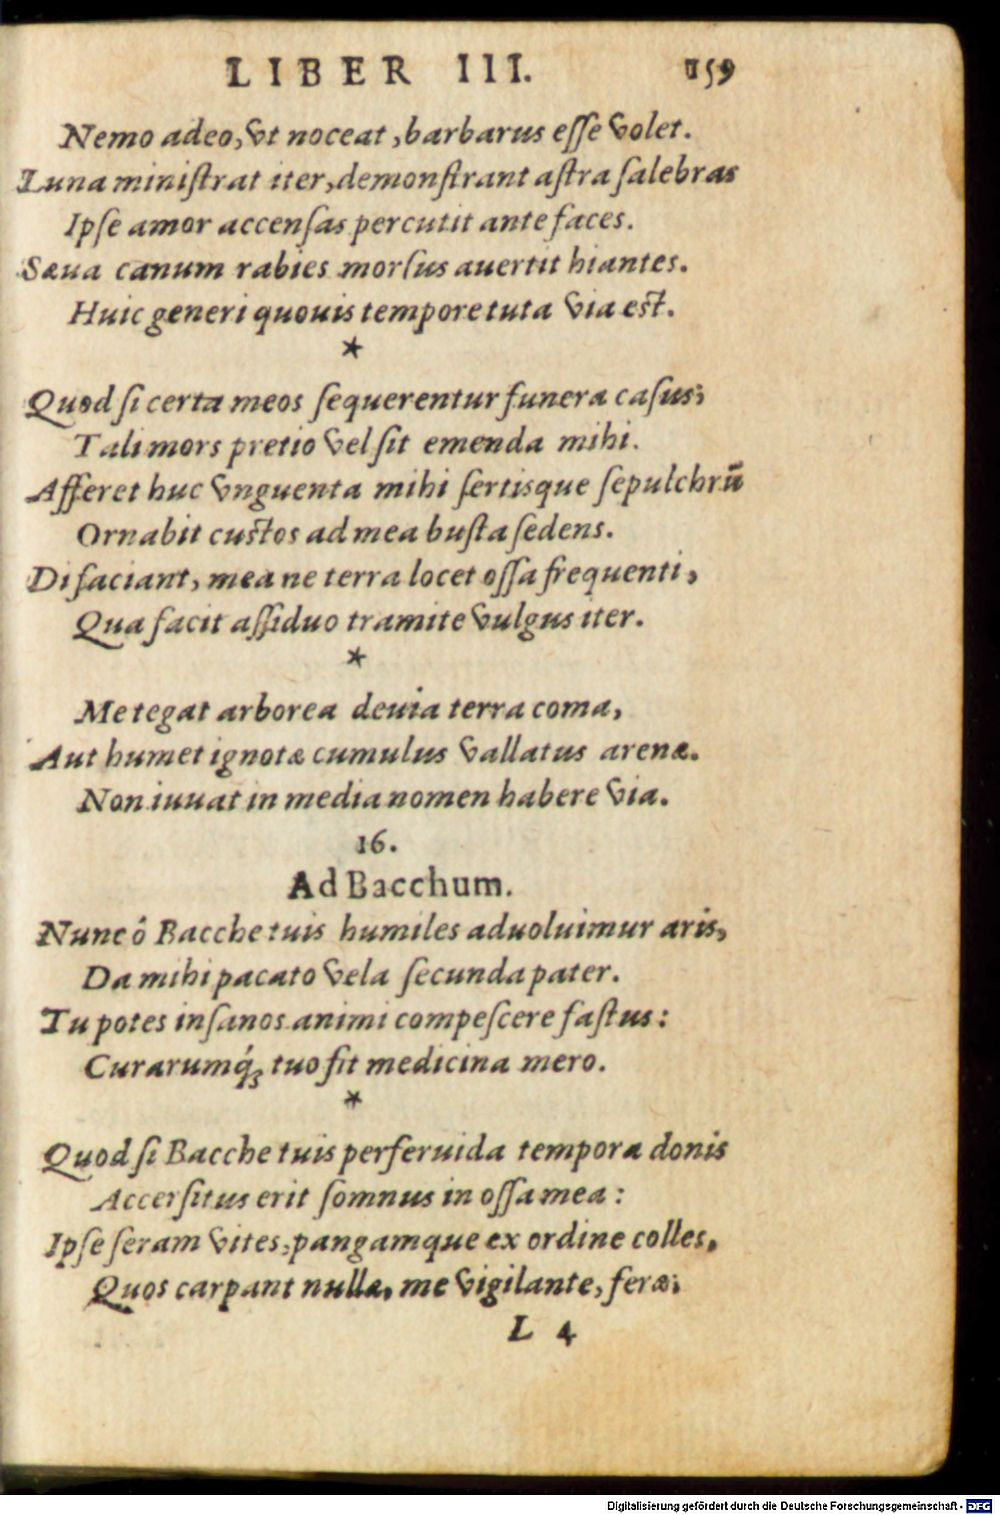 LIBER III. 159
Nemo adeo, vt noceat, barbarus eſſe volet.
Luna miniſtrat iter, demonſtrant aſtra ſalebras
Ipſe amor accenſas percutit ante faces.
Sæua canum rabies morſus auertit hiantes.
Huic generi quouis tempore tuta via eſt.
*
Quod ſi certa meos ſequerentur funera caſus;
Tali mors pretio vel ſit emenda mihi.
Afferet huc vnguenta mihi ſertisque ſepulchrũ
Ornabit cuſtos ad mea buſta ſedens.
Di faciant, mea ne terra locet oſſa frequenti,
Qua facit aſſiduo tramite vulgus iter.
*
Me tegat arborea deuia terra coma,
Aut humet ignotæ cumulus vallatus arenæ.
Non iuuat in media nomen habere via.
16.
Ad Bacchum.
Nunc ô Bacche tuis humiles aduoluimur aris,
Da mihi pacato vela ſecunda pater.
Tu potes inſanos animi compeſcere faſtus:
Curarumq́; tuo fit medicina mero.
*
Quod ſi Bacche tuis perferuida tempora donis
Accerſitus erit ſomnus in oſſa mea:
Ipſe ſeram vites, pangamque ex ordine colles,
Quos carpant nullæ, me vigilante, feræ;
L 4
Digitalisierung gefördert durch die Deutsche Forschungsgemeinschaft - DFG